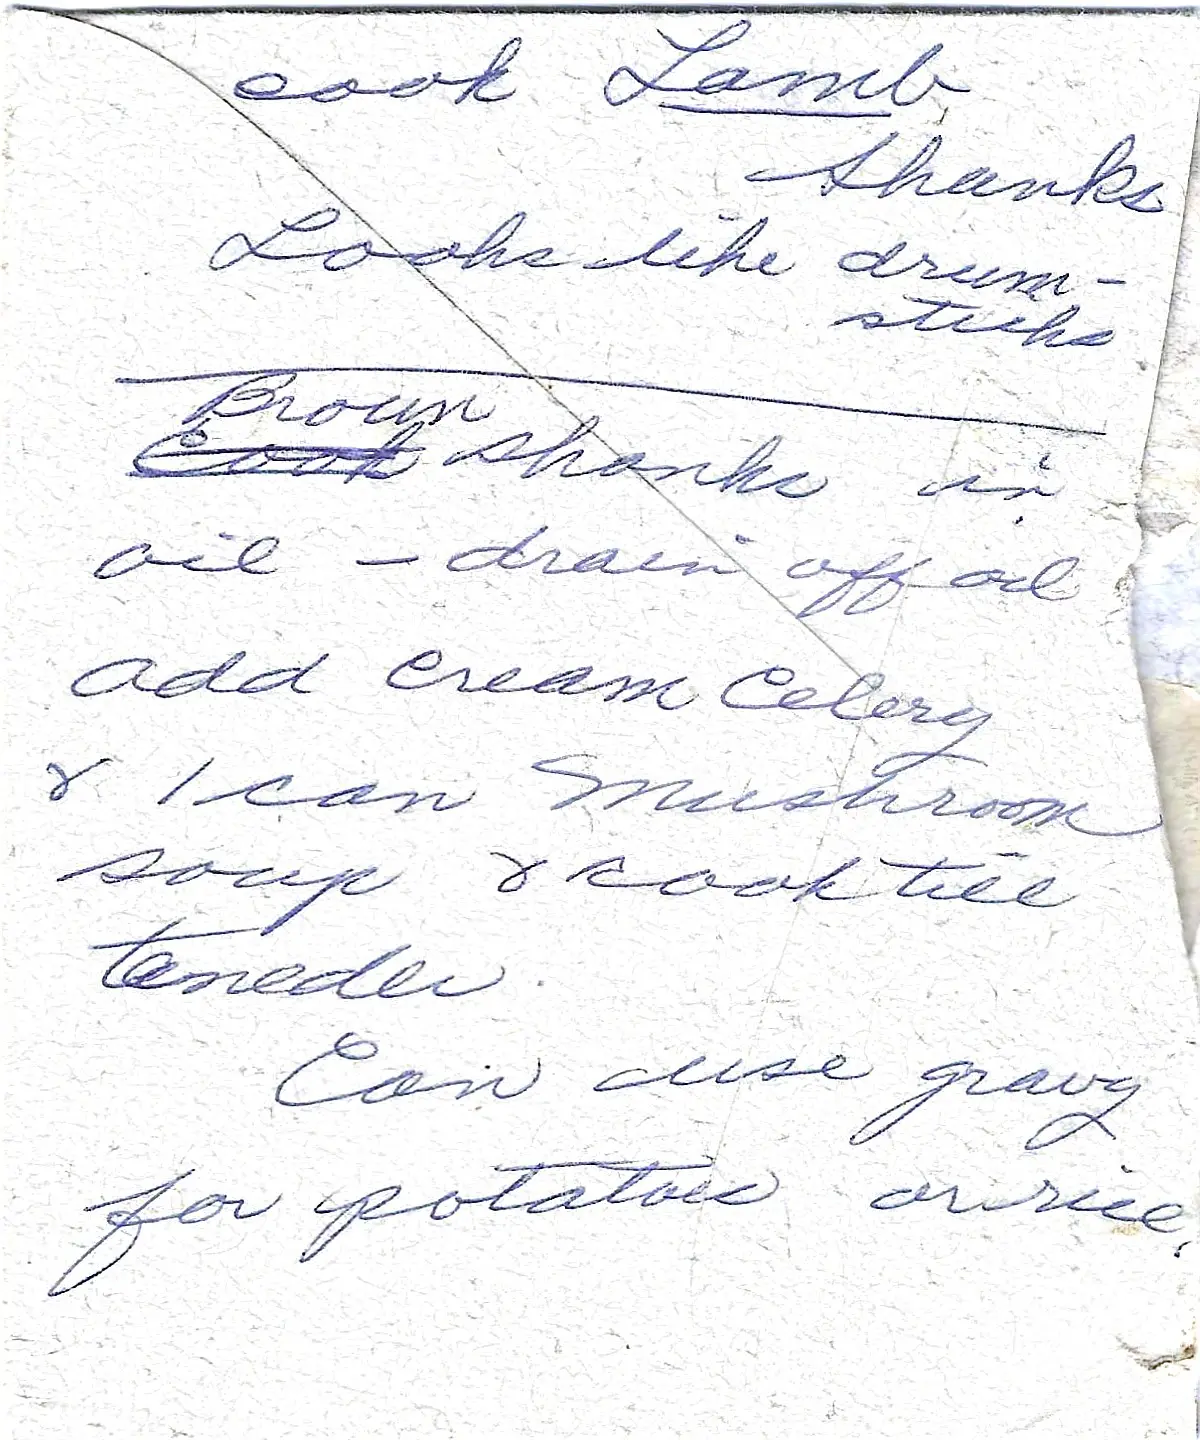 cook Lamb
shanks
Looks like drum-
sticks
Brown
Cook shanks in
oil - drain off oil
add cream Celery
& 1 can Mushroom
soup & cook till
teneder
Can use gravy
for potatoes or rice.